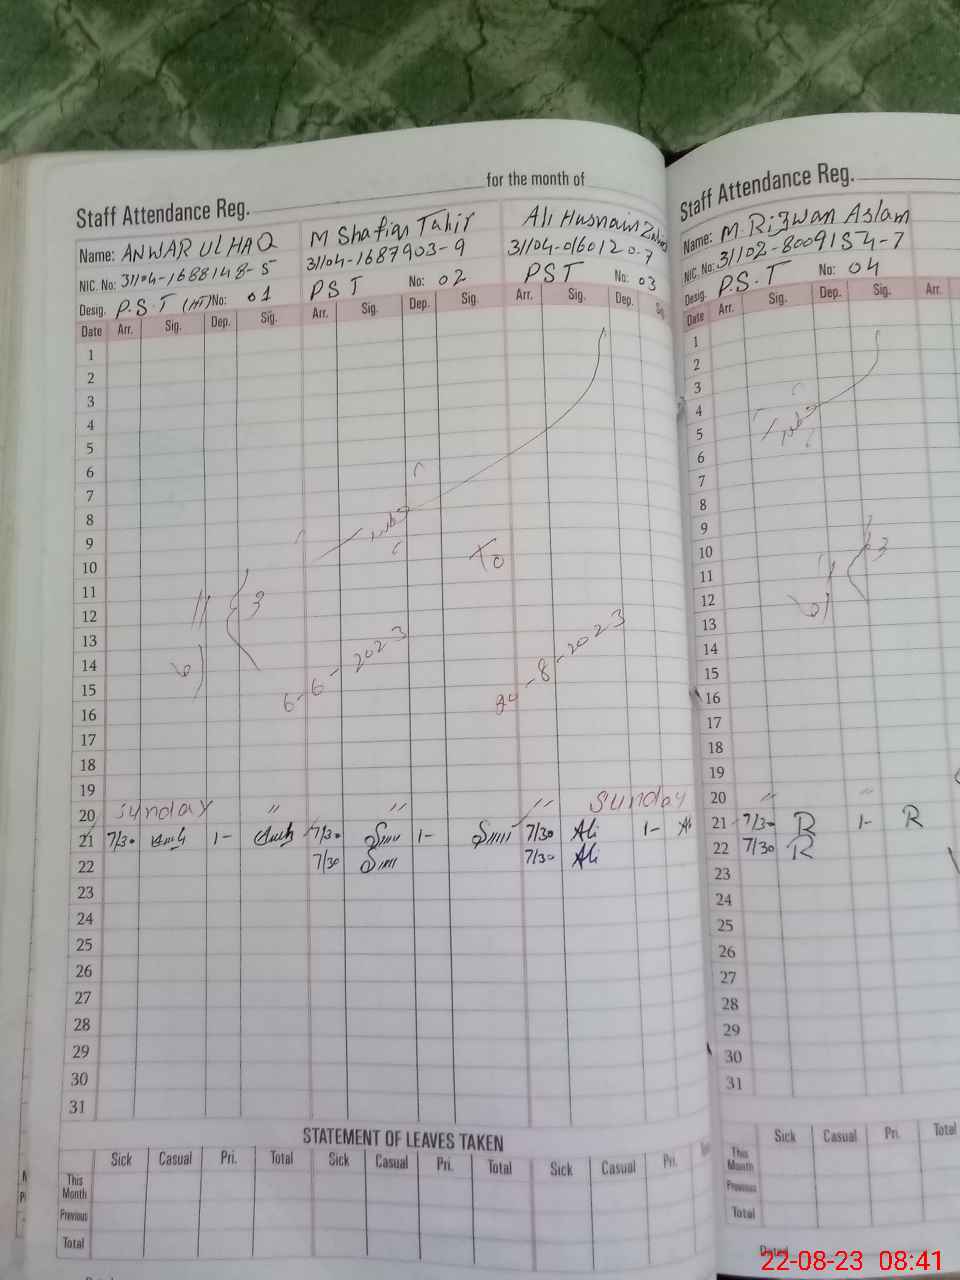 Staff Attendance Reg. for the month of
Name: ANWAR Ul HAQ M Shafian Tahir Ali Husnain
NIC. No: 31104-1688148-5 31104-1687903-9 31104-0160120-7
Desig. P.S.T (HT) No: 01 PST No: 02 PST No: 03
Date Arr. Sig. Dep. Sig. Arr. Sig. Dep. Sig. Arr. Sig. Dep. Sig
1
2
3
4
5
6
7
8
9
10 To
11
12 3
13
14
15 6-6-2023 30-8-2023
16
17
18
19
20 Sunday " " " Sunday
21 7/30 1- 7/30 1- 7/30 Ali 1-
22 7/30 7/30 Ali
23
24
25
26
27
28
29
30
31
STATEMENT OF LEAVES TAKEN
Sick Casual Pri. Total Sick Casual Pri. Total Sick Casual Pri.
This Month
Previous
Total
Staff Attendance Reg.
Name: M Rizwan Aslam
NIC. No: 31102-8009154-7
Desig. P.S.T No: 04
Date Arr. Sig. Dep. Sig. Arr.
1
2
3
4
5
6
7
8
9
10 3
11
12
13
14
15
16
17
18
19
20 " "
21 7/30 R 1- R
22 7/30 R
23
24
25
26
27
28
29
30
31
Sick Casual Pri. Total
This Month
Previous
Total
Dated
22-08-23 08:41